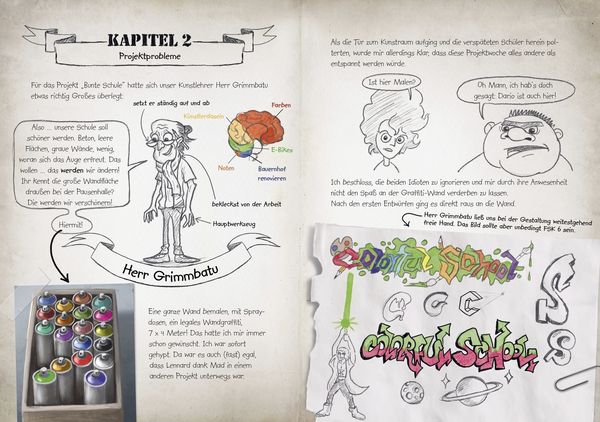 KAPITEL 2
Projektprobleme
Für das Projekt „Bunte Schule" hatte sich unser Kunstlehrer Herr Grimmbatu
etwas richtig Großes überlegt:
setzt er ständig auf und ab
Also ... unsere Schule soll
schöner werden. Beton, leere
Flächen, graue Wände, wenig,
woran sich das Auge erfreut. Das
wollen ... das werden wir ändern!
Ihr kennt die große Wandfläche
draußen bei der Pausenhalle?
Die werden wir verschönern!
Hiermit!
Künstlerdasein
Farben
E-Bikes
Noten
Bauernhof
renovieren
bekleckst von der Arbeit
Hauptwerkzeug
Herr Grimmbatu
Eine ganze Wand bemalen, mit Spray-
dosen, ein legales Wandgraffiti,
7 x 4 Meter! Das hatte ich mir immer
schon gewünscht. Ich war sofort
gehypt. Da war es auch (fast) egal,
dass Lennard dank Mad in einem
anderen Projekt unterwegs war.
Als die Tür zum Kunstraum aufging und die verspäteten Schüler herein pol-
terten, wurde mir allerdings klar, dass diese Projektwoche alles andere als
entspannt werden würde.
Ist hier Malen?
Oh Mann, ich hab's doch
gesagt: Dario ist auch hier!
Ich beschloss, die beiden Idioten zu ignorieren und mir durch ihre Anwesenheit
nicht den Spaß an der Graffiti-Wand verderben zu lassen.
Nach den ersten Entwürfen ging es direkt raus an die Wand.
Herr Grimmbatu ließ uns bei der Gestaltung weitestgehend
freie Hand. Das Bild sollte aber unbedingt FSK 6 sein.
Colorful School
C G C
S
S
COLORFUL SCHOOL